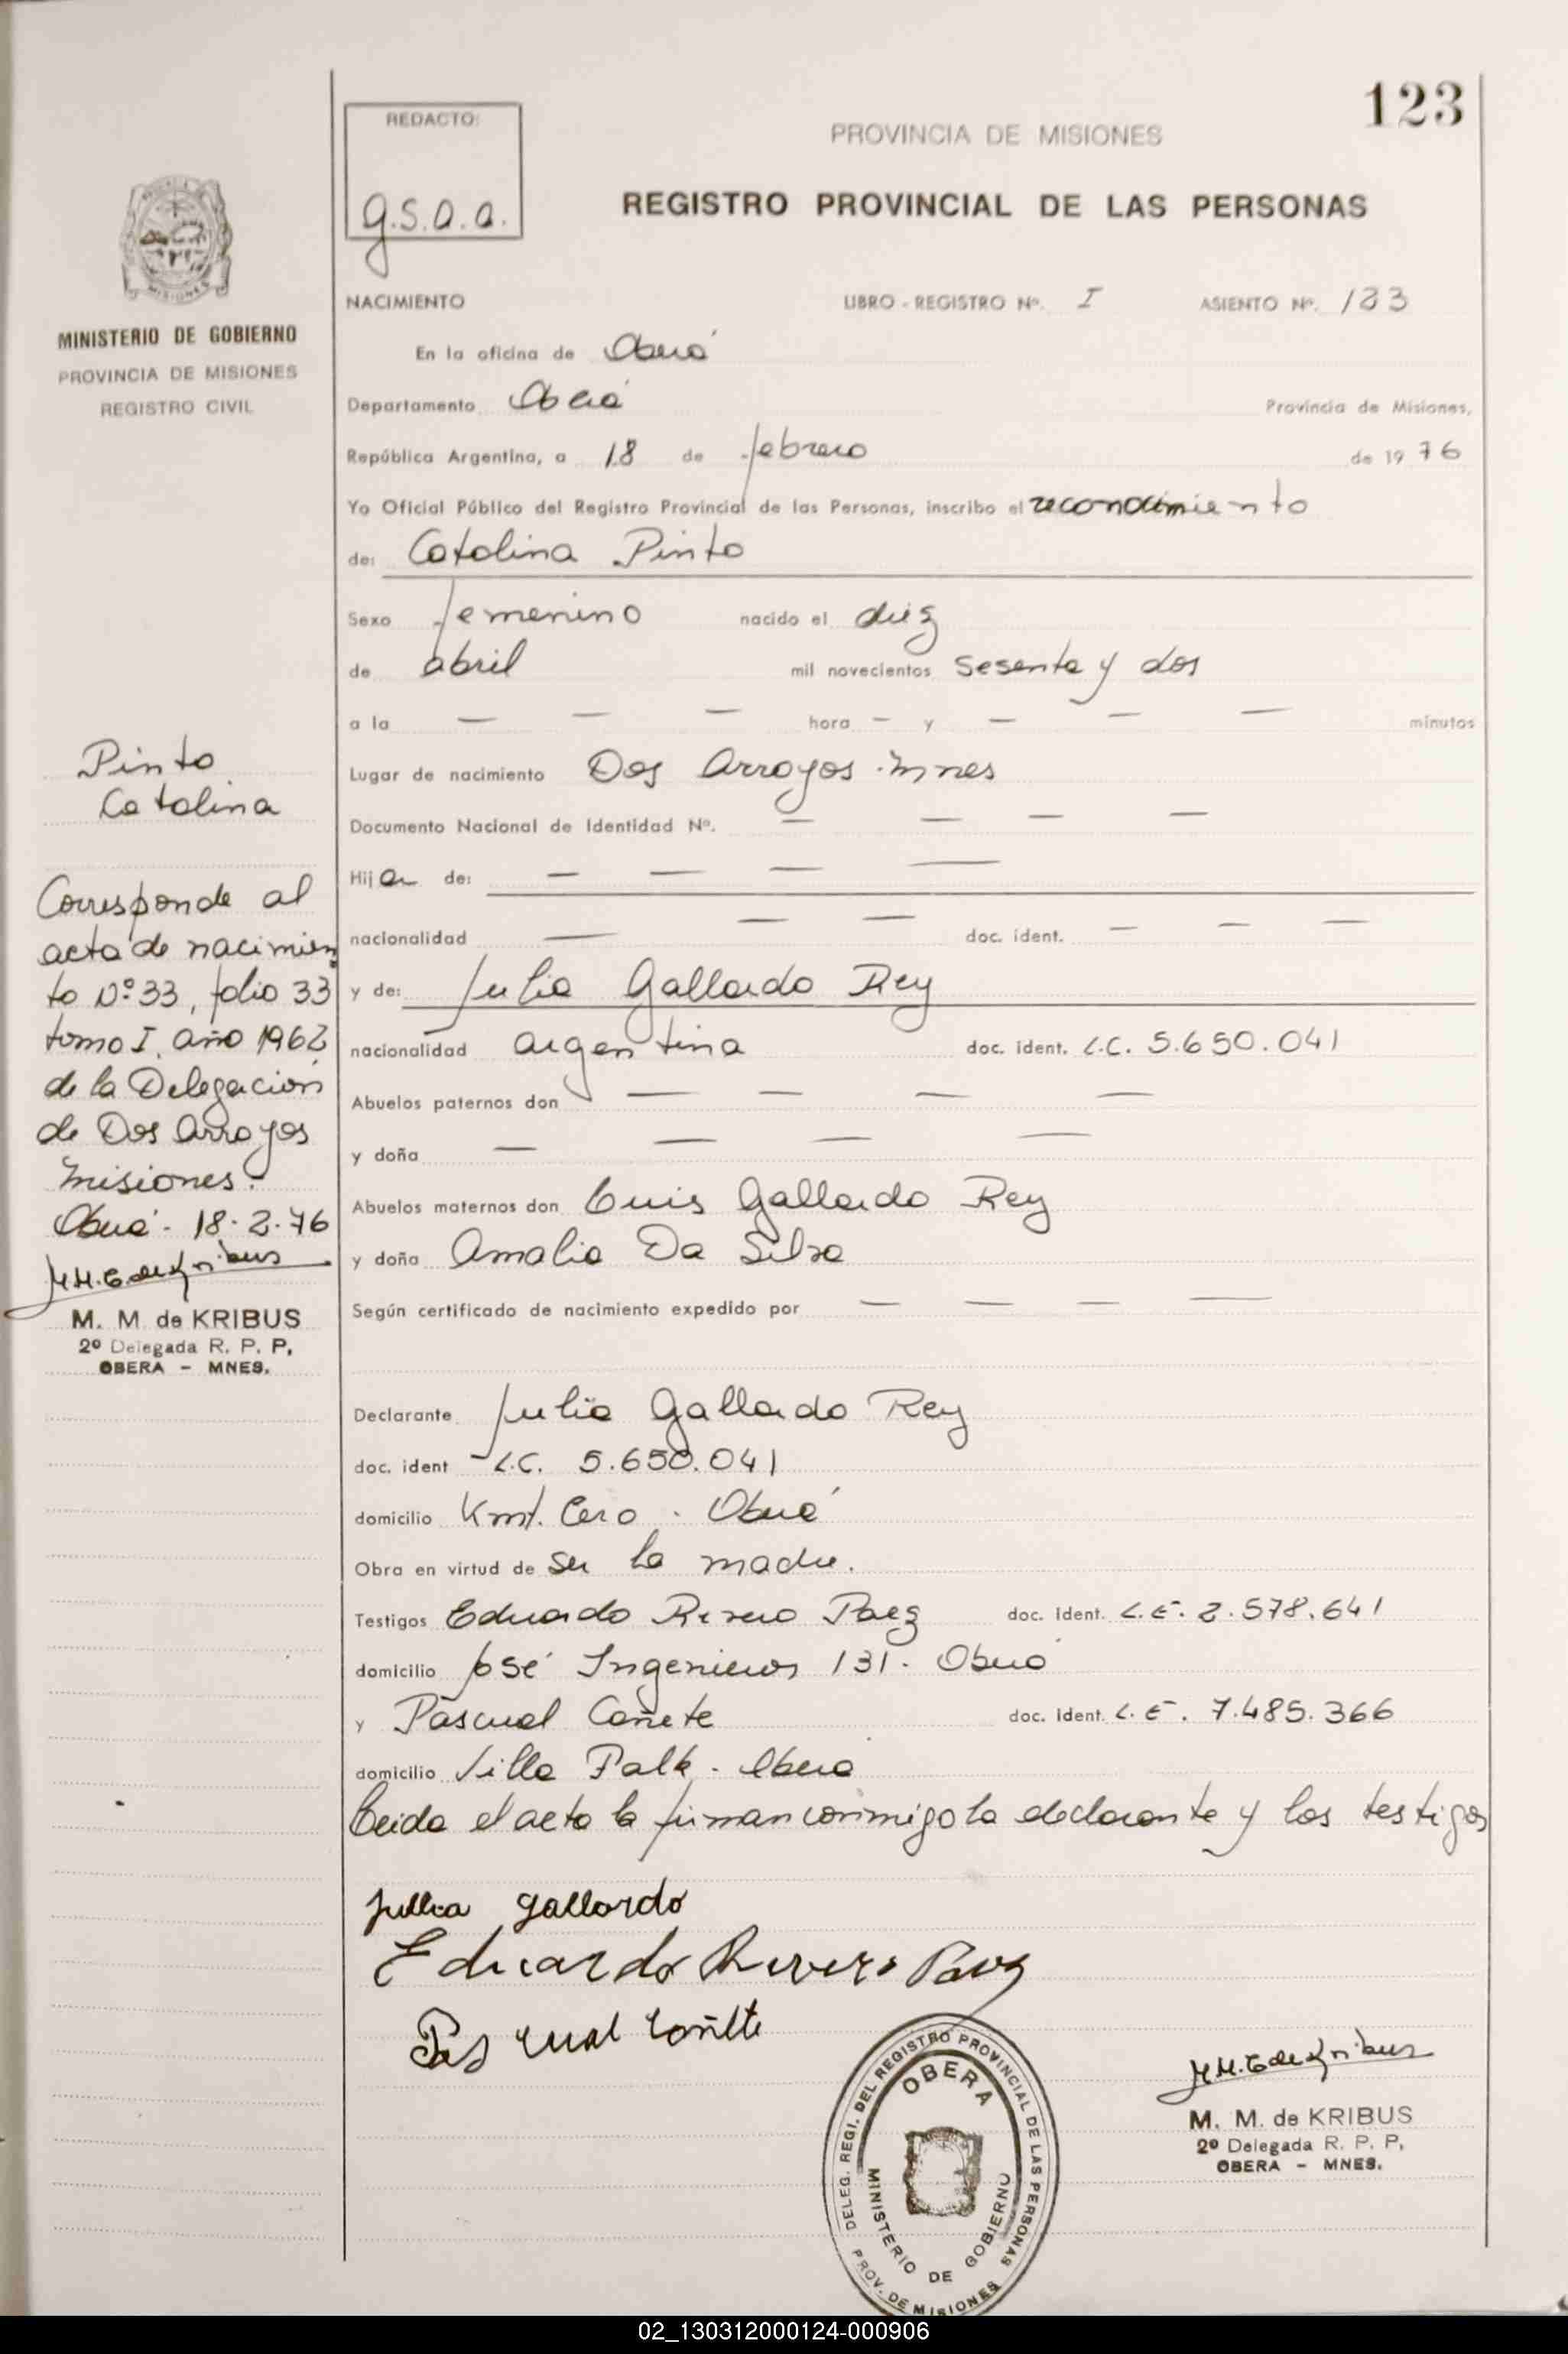 123
REDACTO:
g.s.a.a.
PROVINCIA DE MISIONES
REGISTRO PROVINCIAL DE LAS PERSONAS
MISIONES
MINISTERIO DE GOBIERNO
PROVINCIA DE MISIONES
REGISTRO CIVIL
NACIMIENTO LIBRO - REGISTRO Nº. I ASIENTO Nº. 123
En la oficina de Oberá
Departamento Oberá Provincia de Misiones,
República Argentina, a 18 de febrero de 1976
Yo Oficial Público del Registro Provincial de las Personas, inscribo el reconocimiento
de: Catalina Pinto
Sexo femenino nacido el diez
de abril mil novecientos sesenta y dos
a la — — — hora — y — — — minutos
Lugar de nacimiento Dos Arroyos - Mnes
Documento Nacional de Identidad Nº. — — — —
Hija de: — — — —
nacionalidad — — — doc. ident. — — —
y de: Julia Gallardo Rey
nacionalidad argentina doc. ident. L.C. 5.650.041
Abuelos paternos don — — — —
y doña — — — —
Abuelos maternos don Luis Gallardo Rey
y doña Amalia Da Silva
Según certificado de nacimiento expedido por — — — —
Declarante Julia Gallardo Rey
doc. ident L.C. 5.650.041
domicilio Kmt. Cero - Oberá
Obra en virtud de ser la madre.
Testigos Eduardo Rivero Paez doc. ident. L.E. 2.578.641
domicilio José Ingenieros 131 - Oberá
y Pascual Cañete doc. ident. L.E. 7.485.366
domicilio Villa Falk - Oberá
Leida el acta la firman conmigo la declarante y los testigos
Pinto
Catalina
Corresponde al
acta de nacimien
to Nº 33, folio 33
tomo I, año 1962
de la Delegación
de Dos Arroyos
Misiones.
Oberá - 18-2-76
M.M.G de Kribus
M. M. de KRIBUS
2º Delegada R. P. P.
OBERA - MNES.
Jullia gallardo
Eduardo Rivero Paez
Pascual Cañete
DELEG. REGI. DEL REGISTRO PROVINCIAL DE LAS PERSONAS
OBERA
MINISTERIO DE GOBIERNO
PROV. DE MISIONES
M.M.G de Kribus
M. M. de KRIBUS
2º Delegada R. P. P.
OBERA - MNES.
02_130312000124-000906